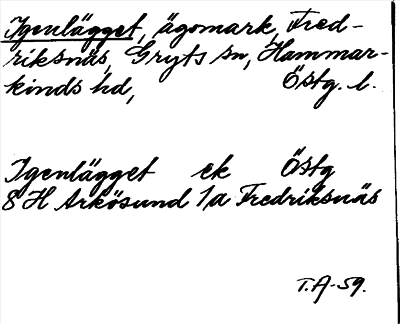 Igenlägget, ägomark, Fred-
riksnäs, Gryts sn, Hammar-
kinds hd, Östg. l.
Igenlägget ek Östg
8 H Arkösund 1a Fredriksnäs
T.A-59.